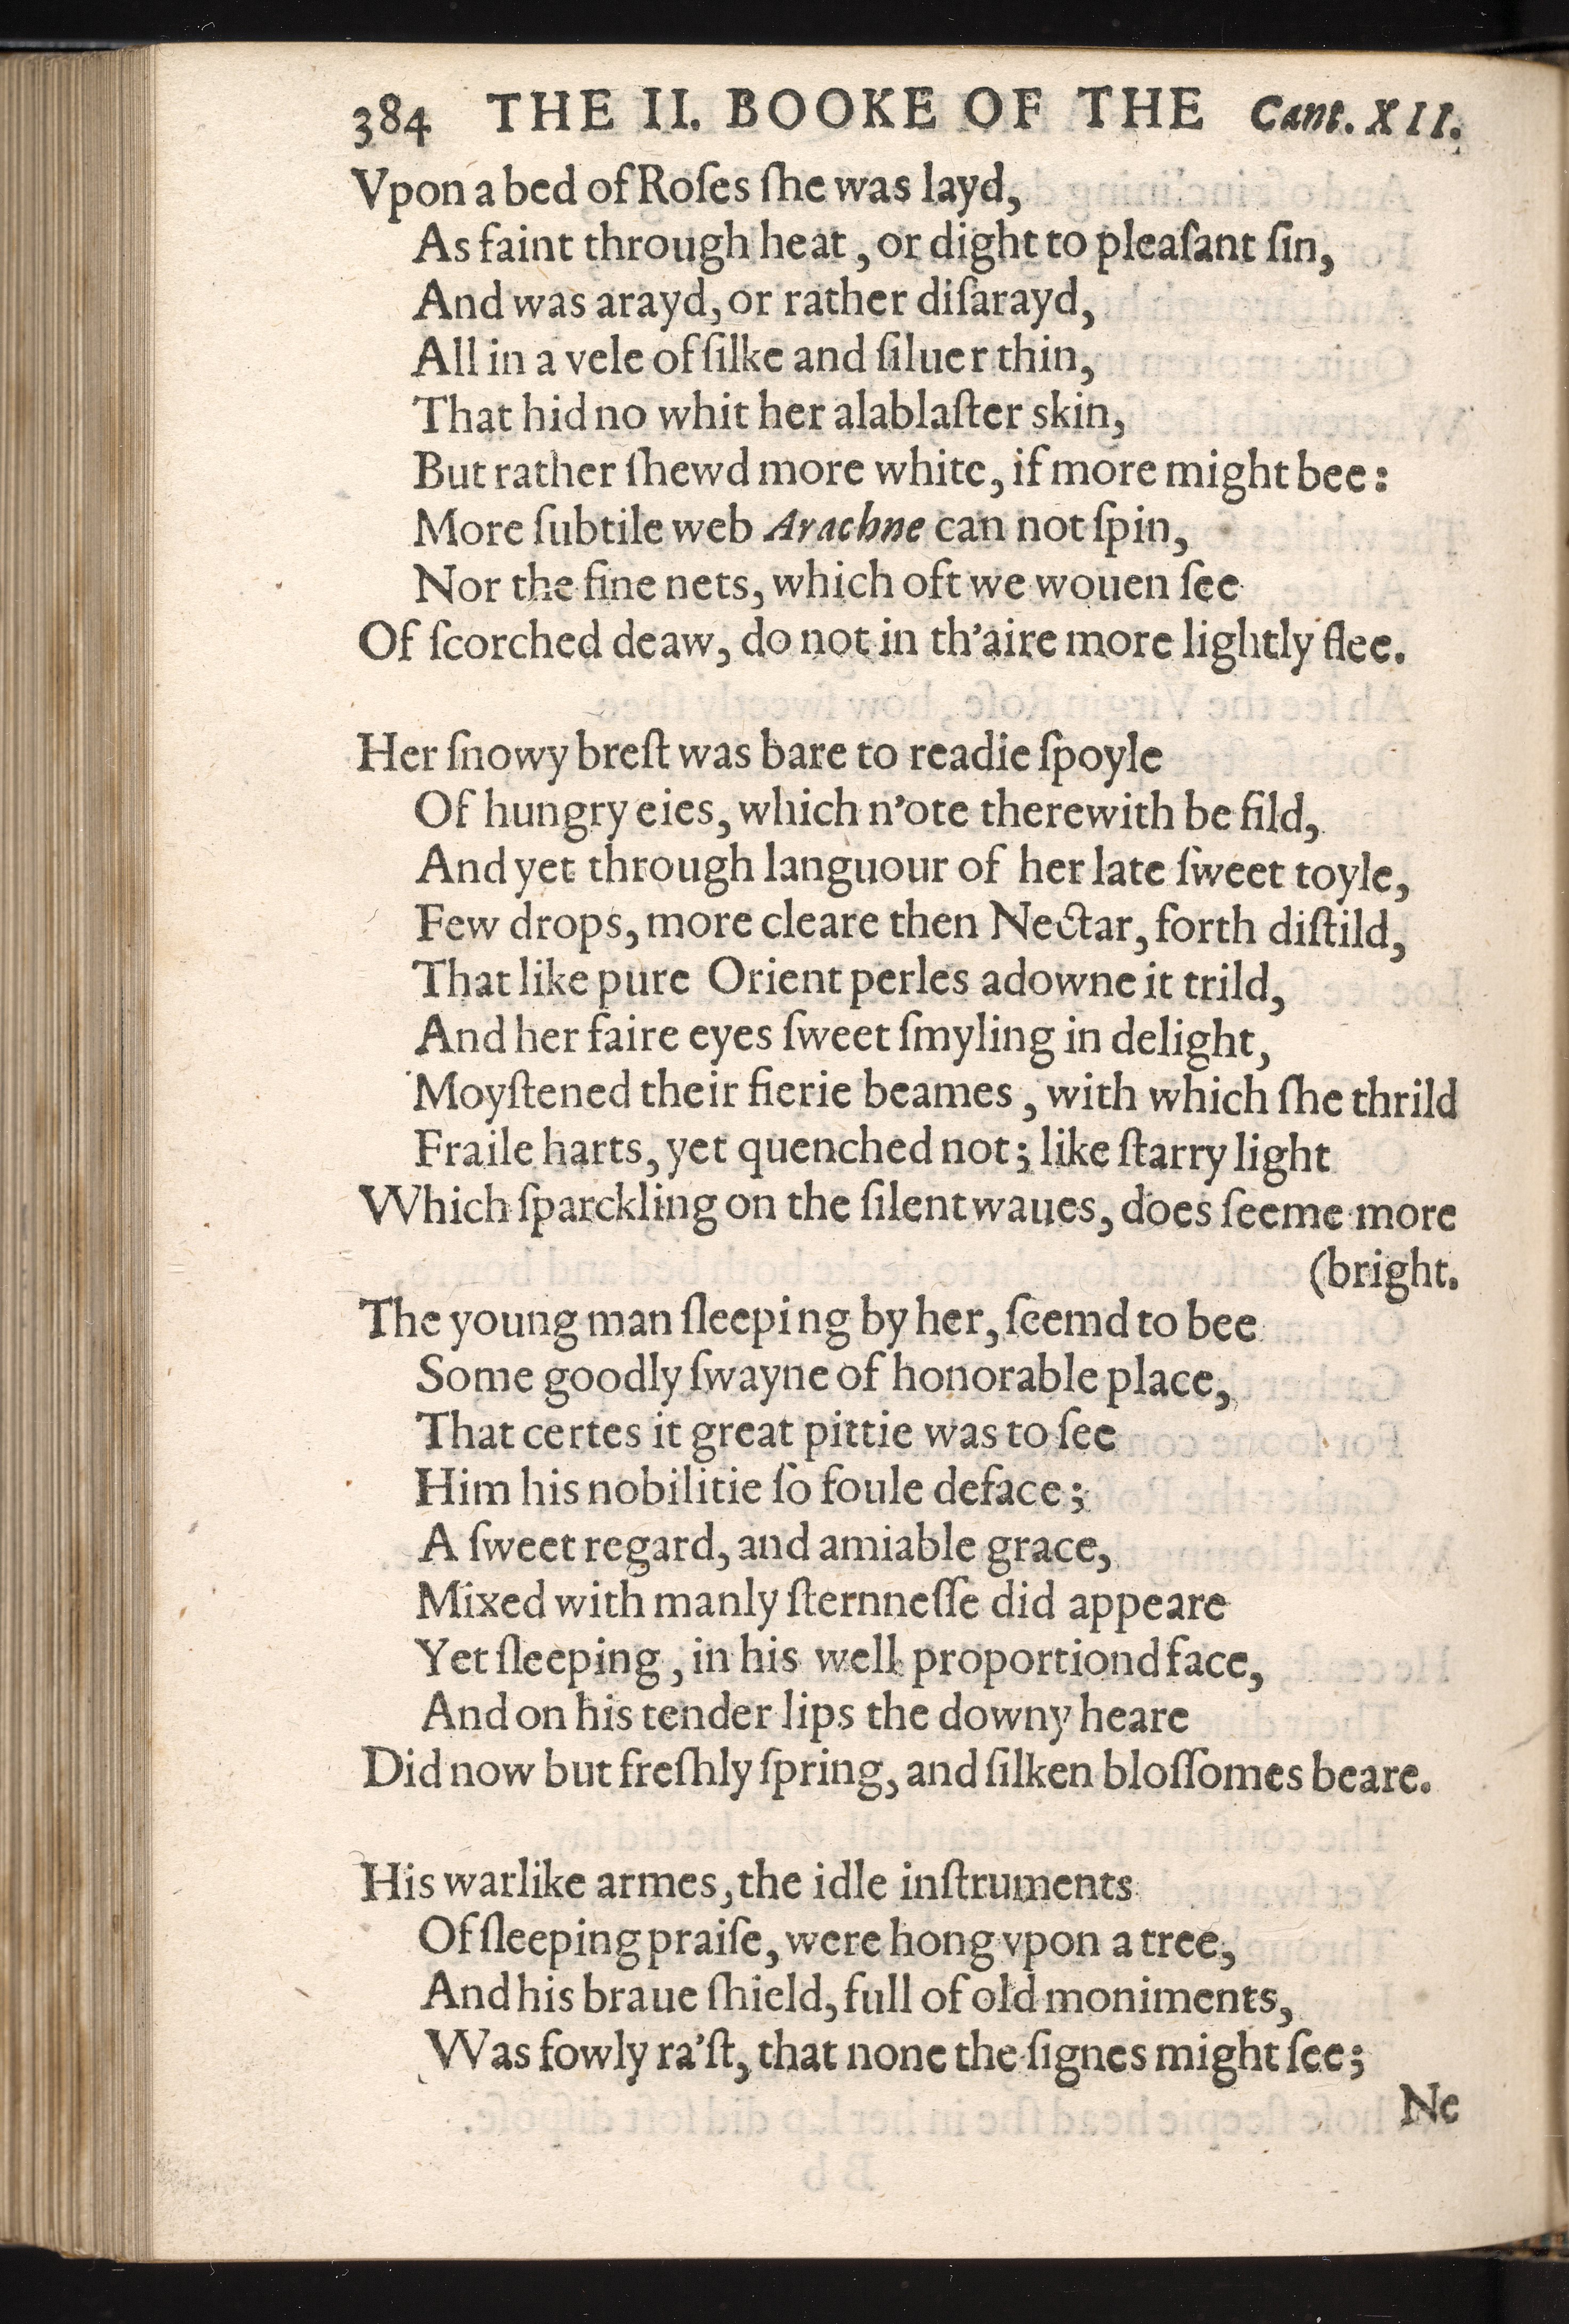 384 THE II. BOOKE OF THE Cant. XII.
Vpon a bed of Roſes ſhe was layd,
As faint through heat, or dight to pleaſant ſin,
And was arayd, or rather diſarayd,
All in a vele of ſilke and ſiluer thin,
That hid no whit her alablaſter skin,
But rather ſhewd more white, if more might bee:
More ſubtile web Arachne can not ſpin,
Nor the fine nets, which oft we wouen ſee
Of ſcorched deaw, do not in th'aire more lightly flee.
Her ſnowy breſt was bare to readie ſpoyle
Of hungry eies, which n'ote therewith be fild,
And yet through languour of her late ſweet toyle,
Few drops, more cleare then Nectar, forth diſtild,
That like pure Orient perles adowne it trild,
And her faire eyes ſweet ſmyling in delight,
Moyſtened their fierie beames, with which ſhe thrild
Fraile harts, yet quenched not; like ſtarry light
Which ſparckling on the ſilent waues, does ſeeme more
(bright.
The young man ſleeping by her, ſeemd to bee
Some goodly ſwayne of honorable place,
That certes it great pittie was to ſee
Him his nobilitie ſo foule deface;
A ſweet regard, and amiable grace,
Mixed with manly ſternneſſe did appeare
Yet ſleeping, in his well proportiond face,
And on his tender lips the downy heare
Did now but freſhly ſpring, and ſilken bloſſomes beare.
His warlike armes, the idle inſtruments
Of ſleeping praiſe, were hong vpon a tree,
And his braue ſhield, full of old moniments,
Was fowly ra'ſt, that none the ſignes might ſee;
Ne